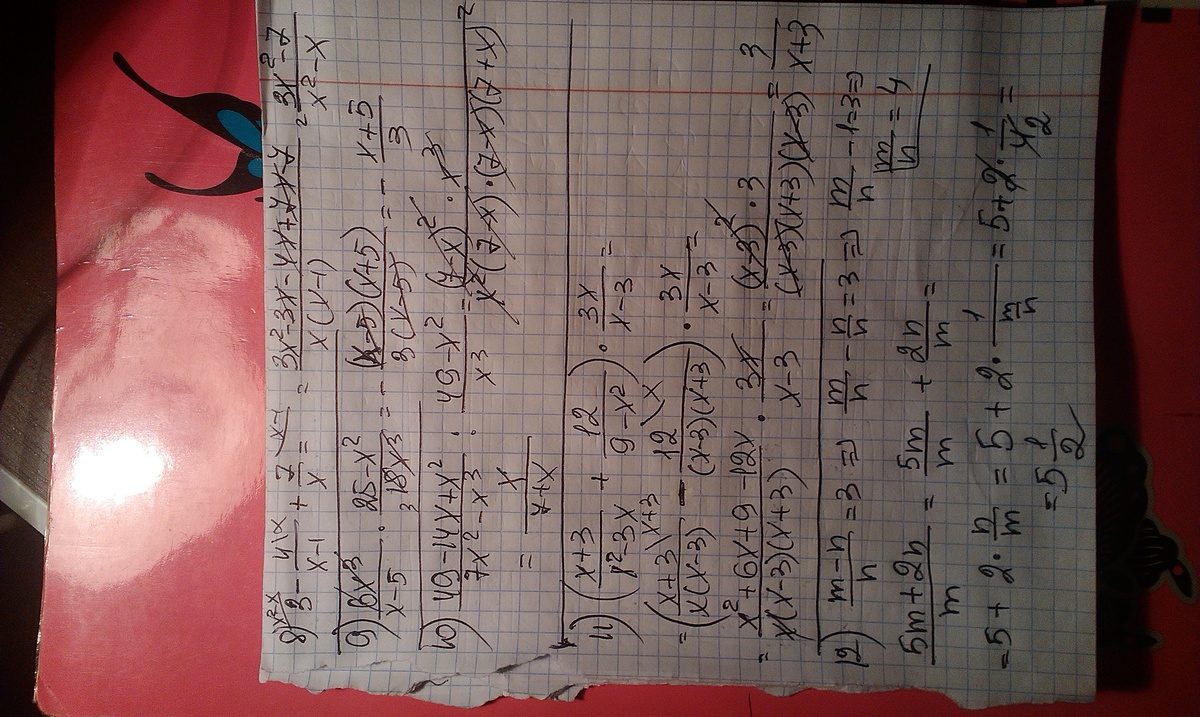 8) 3^{\x²-x} - 4\x / x-1 + 7\x-1 / x = 3x²-3x-4x+7x-7 / x(x-1) = 3x²-7 / x²-x
9) 6x³ / x-5 · 25-x² / 18x³ = - (x-5)(x+5) / 3(x-5) = - x+5 / 3
10) 49-14x+x² / 7x²-x³ : 49-x² / x³ = (7-x)² · x³ / x²(7-x)·(7-x)(7+x) =
= x / 7+x
11) ( x+3 / x²-3x + 12 / 9-x² ) · 3x / x-3 =
= ( x+3\x+3 / x(x-3) - 12\x / (x-3)(x+3) ) · 3x / x-3 =
= x²+6x+9-12x / x(x-3)(x+3) · 3x / x-3 = (x-3)²·3 / (x-3)(x+3)(x-3) = 3 / x+3
12) m-n / n = 3 => m/n - n/n = 3 => m/n - 1 = 3 =>
5m+2n / m = 5m / m + 2n / m = m/n = 4
= 5 + 2 · n/m = 5 + 2 · 1 / m/n = 5 + 2 · 1/4 =
= 5 1/2